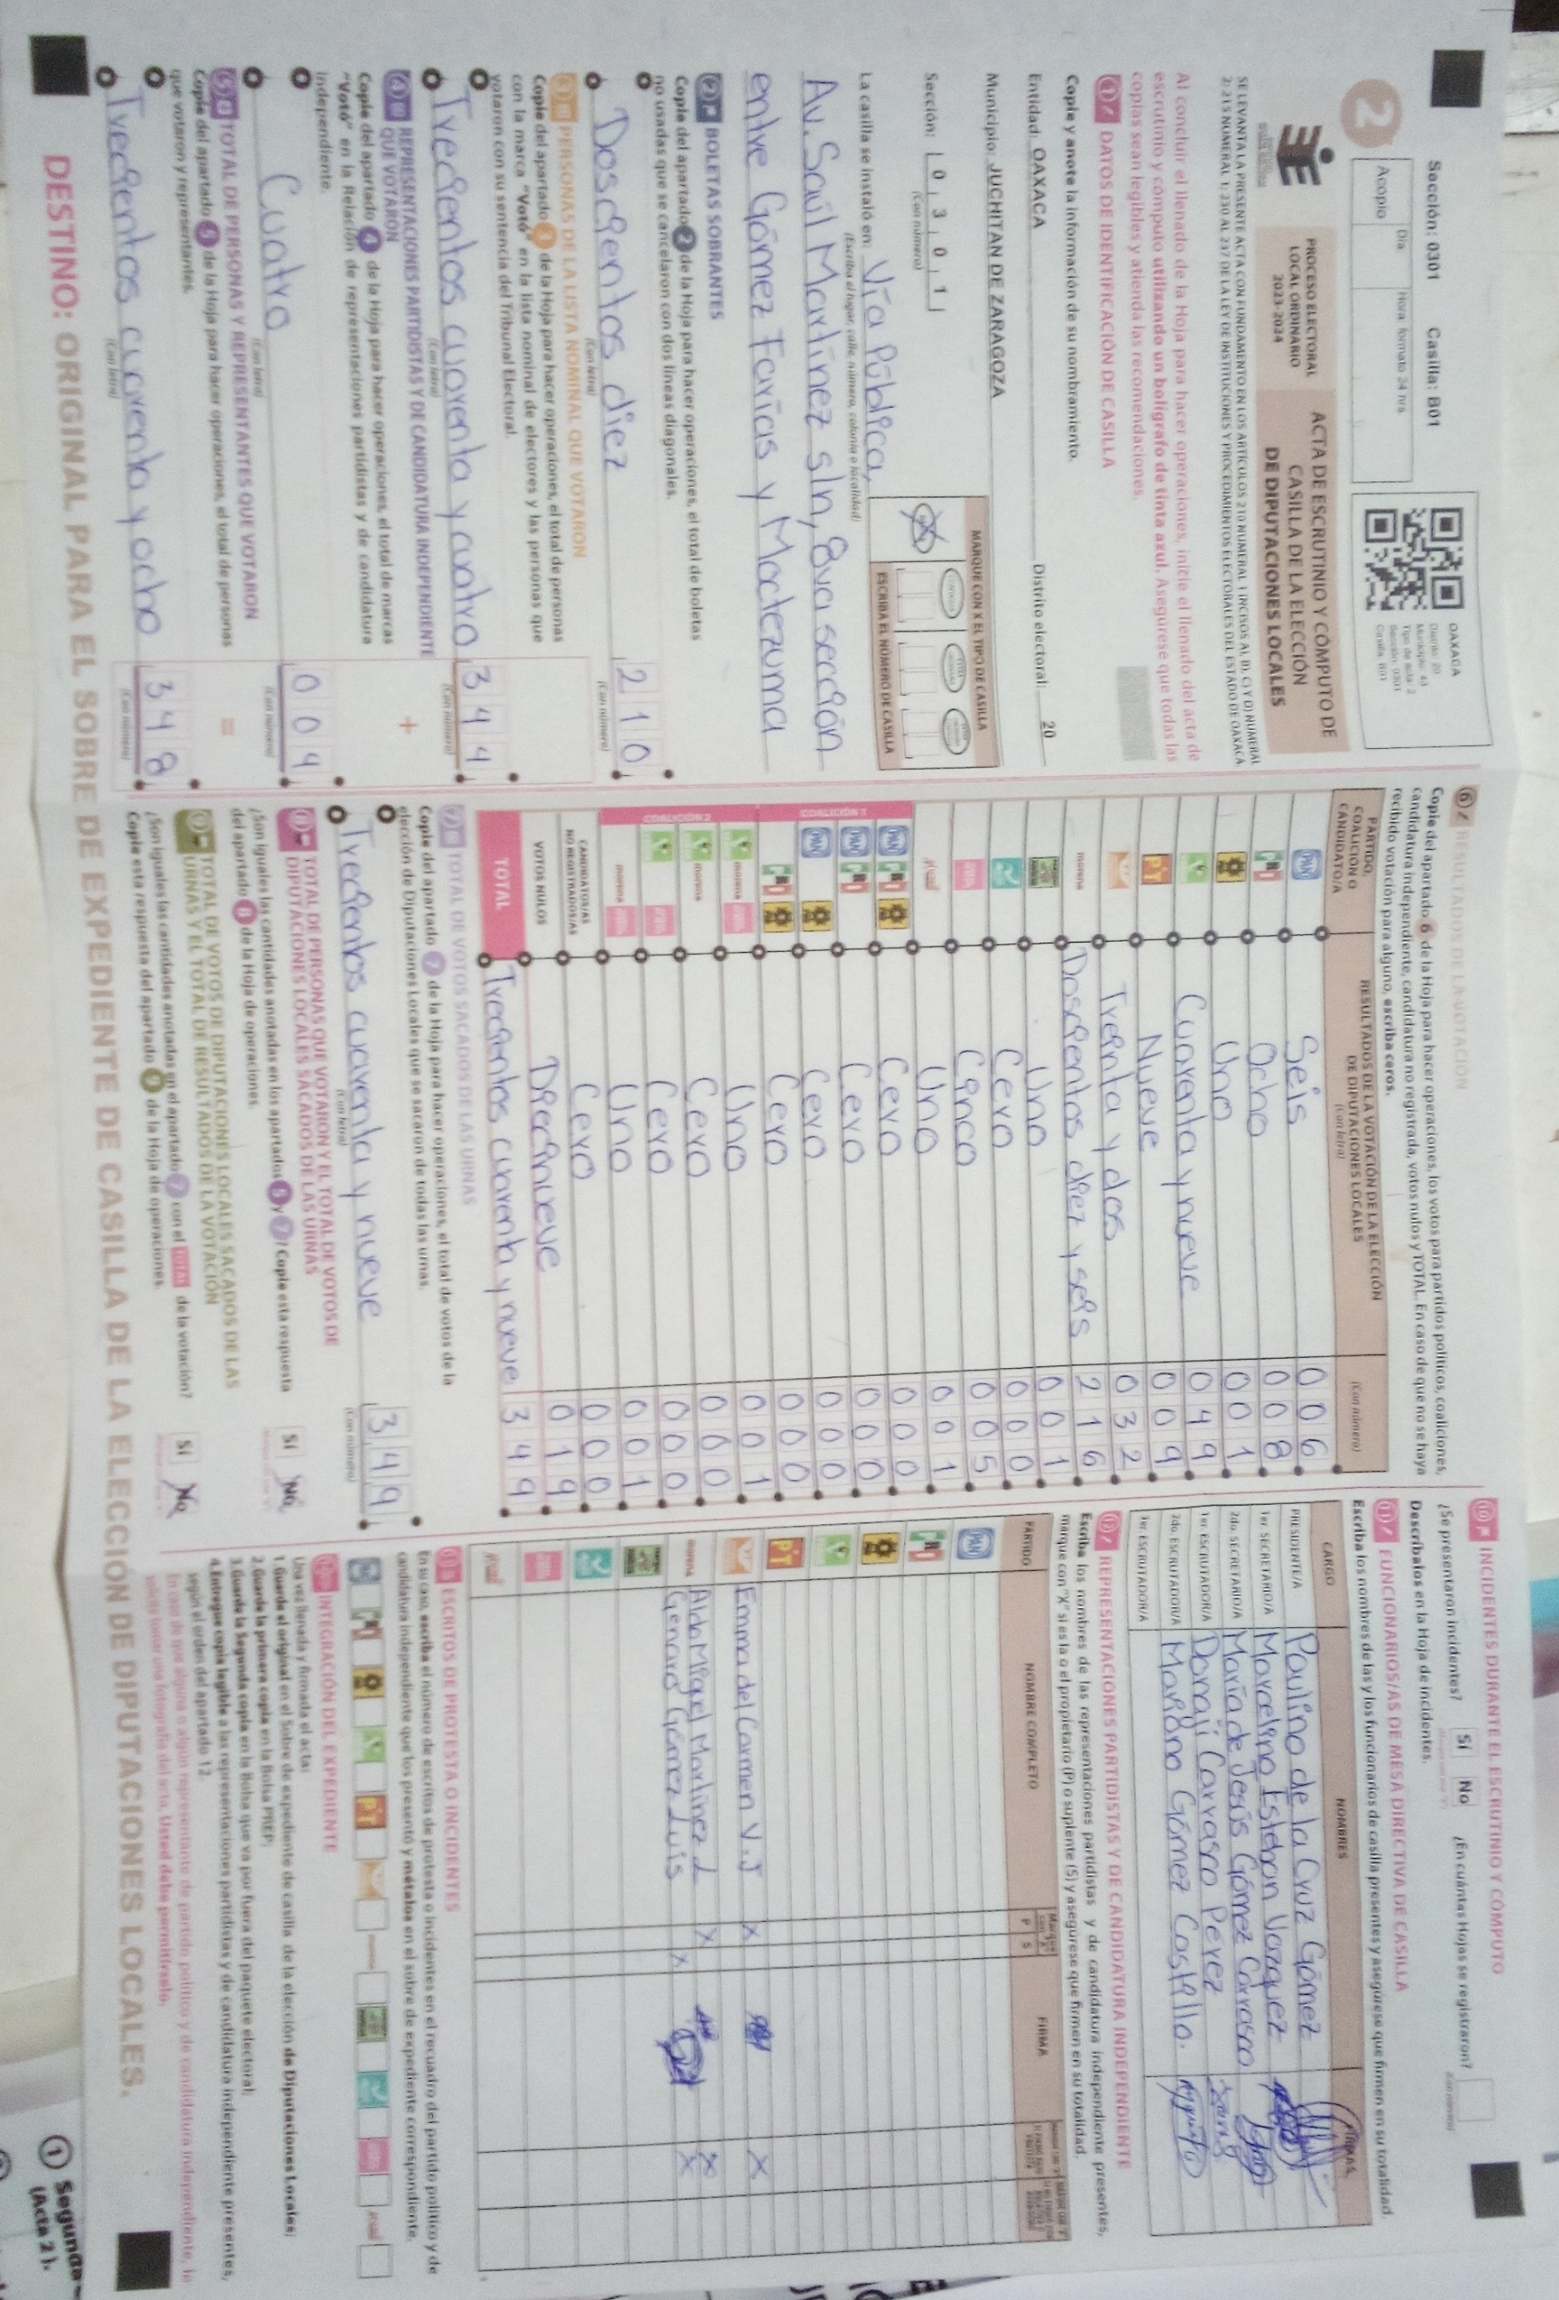 Sección: 0301 Casilla: B01
Día Hora formato 24 hrs
Acopio
2
OAXACA
Distrito: 20
Municipio: 43
Tipo de acta: 2
Sección: 0301
Casilla: B01
PROCESO ELECTORAL
LOCAL ORDINARIO
2023-2024
ACTA DE ESCRUTINIO Y CÓMPUTO DE
CASILLA DE LA ELECCIÓN
DE DIPUTACIONES LOCALES
SE LEVANTA LA PRESENTE ACTA CON FUNDAMENTO EN LOS ARTÍCULOS 210 NUMERAL 1 INCISOS A), B), C) Y D) NUMERAL
2; 215 NUMERAL 1; 230 AL 237 DE LA LEY DE INSTITUCIONES Y PROCEDIMIENTOS ELECTORALES DEL ESTADO DE OAXACA.
Al concluir el llenado de la Hoja para hacer operaciones, inicie el llenado del acta de
escrutinio y cómputo utilizando un bolígrafo de tinta azul. Asegúrese que todas las
copias sean legibles y atienda las recomendaciones.
1 DATOS DE IDENTIFICACIÓN DE CASILLA
Copie y anote la información de su nombramiento.
Entidad: OAXACA Distrito electoral: 20
Municipio: JUCHITAN DE ZARAGOZA
Sección: 0 3 0 1
(Con número)
MARQUE CON X EL TIPO DE CASILLA
ESCRIBA EL NÚMERO DE CASILLA
La casilla se instaló en: Vía Pública,
(Escriba el lugar: calle, número, colonia o localidad)
Av. Saúl Martínez s/n, 8va sección
entre Gómez Farías y Moctezuma
2 BOLETAS SOBRANTES
Copie del apartado 2 de la Hoja para hacer operaciones, el total de boletas
no usadas que se cancelaron con dos líneas diagonales.
Doscientos diez 2 1 0
(Con letra) (Con número)
3 PERSONAS DE LA LISTA NOMINAL QUE VOTARON
Copie del apartado 3 de la Hoja para hacer operaciones, el total de personas
con la marca "Votó" en la lista nominal de electores y las personas que
votaron con su sentencia del Tribunal Electoral.
Trecientos cuarenta y cuatro 3 4 4
(Con letra) (Con número)
4 REPRESENTACIONES PARTIDISTAS Y DE CANDIDATURA INDEPENDIENTE
QUE VOTARON
+
Copie del apartado 4 de la Hoja para hacer operaciones, el total de marcas
"Votó" en la Relación de representaciones partidistas y de candidatura
independiente.
Cuatro 0 0 4
(Con letra) (Con número)
5 TOTAL DE PERSONAS Y REPRESENTANTES QUE VOTARON
=
Copie del apartado 5 de la Hoja para hacer operaciones, el total de personas
que votaron y representantes.
Trecientos cuarenta y ocho 3 4 8
(Con letra) (Con número)
6 RESULTADOS DE LA VOTACIÓN
Copie del apartado 6 de la Hoja para hacer operaciones, los votos para partidos políticos, coaliciones,
candidatura independiente, candidatura no registrada, votos nulos y TOTAL. En caso de que no se haya
recibido votación para alguno, escriba ceros.
PARTIDO,
COALICIÓN O
CANDIDATO/A
RESULTADOS DE LA VOTACIÓN DE LA ELECCIÓN
DE DIPUTACIONES LOCALES
(Con letra)
(Con número)
PAN Seis 0 0 6
PRI Ocho 0 0 8
PRD Uno 0 0 1
Cuarenta y nueve 0 4 9
PT Nueve 0 0 9
Treinta y dos 0 3 2
morena Doscientos diez y seis 2 1 6
Uno 0 0 1
Cero 0 0 0
Cinco 0 0 5
Uno 0 0 1
COALICIÓN 1
PAN PRI PRD Cero 0 0 0
PAN PRI Cero 0 0 0
PAN PRD Cero 0 0 0
PRI PRD Cero 0 0 0
COALICIÓN 2
morena Uno 0 0 1
morena Cero 0 0 0
Cero 0 0 0
morena Uno 0 0 1
CANDIDATOS/AS
NO REGISTRADOS/AS Cero 0 0 0
VOTOS NULOS Diecinueve 0 1 9
TOTAL Trecientos cuarenta y nueve 3 4 9
7 TOTAL DE VOTOS SACADOS DE LAS URNAS
Copie del apartado 7 de la Hoja para hacer operaciones, el total de votos de la
elección de Diputaciones Locales que se sacaron de todas las urnas.
Trecientos cuarenta y nueve 3 4 9
(Con letra) (Con número)
8 TOTAL DE PERSONAS QUE VOTARON Y EL TOTAL DE VOTOS DE
DIPUTACIONES LOCALES SACADOS DE LAS URNAS
¿Son iguales las cantidades anotadas en los apartados 5 y 7? Copie esta respuesta
del apartado 8 de la Hoja de operaciones.
Sí No
9 TOTAL DE VOTOS DE DIPUTACIONES LOCALES SACADOS DE LAS
URNAS Y EL TOTAL DE RESULTADOS DE LA VOTACIÓN
¿Son iguales las cantidades anotadas en el apartado 7 con el TOTAL de la votación?
Copie esta respuesta del apartado 9 de la Hoja de operaciones.
Sí No
10 INCIDENTES DURANTE EL ESCRUTINIO Y CÓMPUTO
¿Se presentaron incidentes? Sí No ¿En cuántas Hojas se registraron?
(Con número)
Descríbalos en la Hoja de incidentes.
11 FUNCIONARIOS/AS DE MESA DIRECTIVA DE CASILLA
Escriba los nombres de las y los funcionarios de casilla presentes y asegúrese que firmen en su totalidad.
CARGO NOMBRES FIRMAS
PRESIDENTE/A Paulino de la Cruz Gómez
1er. SECRETARIO/A Marcelino Esteban Vazquez
2do. SECRETARIO/A María de Jesús Gómez Carrasco
1er. ESCRUTADOR/A Donají Carrasco Pérez
2do. ESCRUTADOR/A Mariano Gómez Castillo.
3er. ESCRUTADOR/A
12 REPRESENTACIONES PARTIDISTAS Y DE CANDIDATURA INDEPENDIENTE
Escriba los nombres de las representaciones partidistas y de candidatura independiente presentes,
marque con "X" si es la o el propietario (P) o suplente (S) y asegúrese que firmen en su totalidad.
PARTIDO NOMBRE COMPLETO P S FIRMA
PAN
PRI
PRD
PT
Emma del Carmen V. J X X
morena Aldo Miguel Martinez L X X
Genaro Gómez Luis X X
13 ESCRITOS DE PROTESTA O INCIDENTES
En su caso, escriba el número de escritos de protesta o incidentes en el recuadro del partido político y de
candidatura independiente que los presentó y métalos en el sobre de expediente correspondiente.
14 INTEGRACIÓN DEL EXPEDIENTE
Una vez llenada y firmada el acta:
1. Guarde el original en el Sobre de expediente de casilla de la elección de Diputaciones Locales;
2. Guarde la primera copia en la Bolsa PREP;
3. Guarde la Segunda copia en la Bolsa que va por fuera del paquete electoral;
4. Entregue copia legible a las representaciones partidistas y de candidatura independiente presentes,
según el orden del apartado 12.
En caso de que alguna o algún representante de partido político y de candidatura independiente, le
solicite tomar una fotografía del acta, Usted debe permitírselo.
DESTINO: ORIGINAL PARA EL SOBRE DE EXPEDIENTE DE CASILLA DE LA ELECCIÓN DE DIPUTACIONES LOCALES.
1 Segunda
(Acta 2).